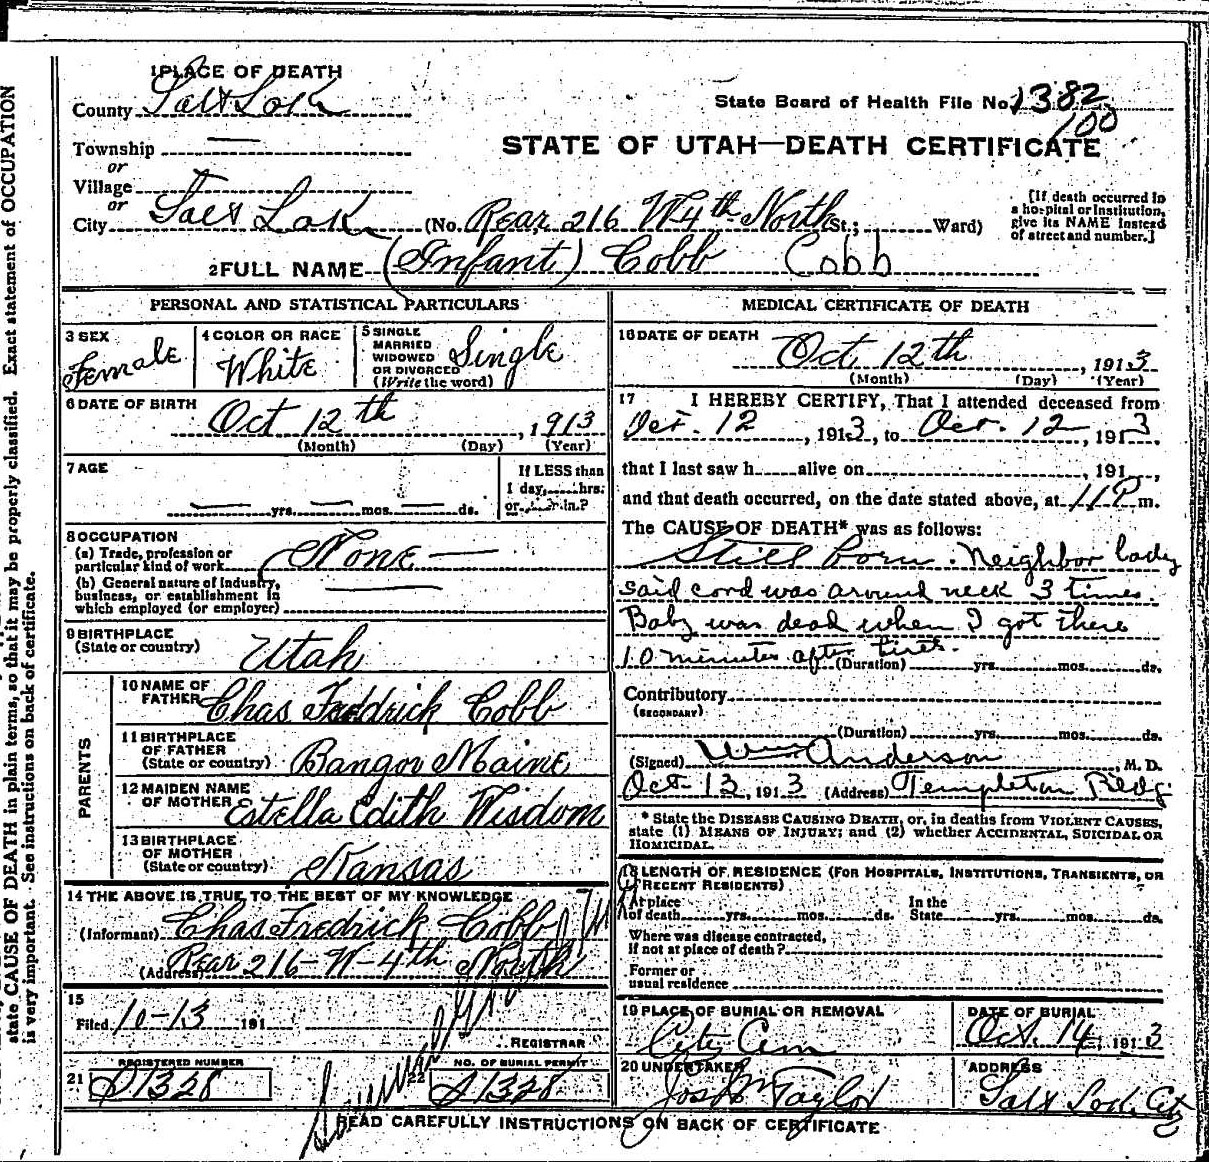 state CAUSE OF DEATH in plain terms, so that it may be properly classified. Exact statement of OCCUPATION
is very important. See instructions on back of certificate.
1 PLACE OF DEATH
County Salt Lake
State Board of Health File No. 1382
100
STATE OF UTAH—DEATH CERTIFICATE
Township —
or
Village
or
City Salt Lake (No. Rear 216 W 4th North St.; Ward)
[If death occurred in
a hospital or institution,
give its NAME instead
of street and number.]
2 FULL NAME (Infant) Cobb Cobb
PERSONAL AND STATISTICAL PARTICULARS
3 SEX
Female
4 COLOR OR RACE
White
5 SINGLE
MARRIED
WIDOWED
OR DIVORCED
(Write the word)
Single
6 DATE OF BIRTH
Oct 12th, 1913
(Month) (Day) (Year)
7 AGE
— yrs. — mos. — ds.
If LESS than
1 day, hrs.
or min.?
8 OCCUPATION
(a) Trade, profession or
particular kind of work None —
(b) General nature of industry,
business, or establishment in
which employed (or employer) —
9 BIRTHPLACE
(State or country) Utah
PARENTS
10 NAME OF
FATHER Chas Fredrick Cobb
11 BIRTHPLACE
OF FATHER
(State or country) Bangor Maine
12 MAIDEN NAME
OF MOTHER Estella Edith Wisdom
13 BIRTHPLACE
OF MOTHER
(State or country) Kansas
14 THE ABOVE IS TRUE TO THE BEST OF MY KNOWLEDGE
(Informant) Chas Fredrick Cobb
(Address) Rear 216-W-4th North
15
Filed 10-13 191
REGISTRAR
REGISTERED NUMBER
21 D1328
NO. OF BURIAL PERMIT
22 D1328
MEDICAL CERTIFICATE OF DEATH
16 DATE OF DEATH
Oct 12th, 1913
(Month) (Day) (Year)
17 I HEREBY CERTIFY, That I attended deceased from
Oct. 12, 1913, to Oct. 12, 1913
that I last saw h alive on , 191 ,
and that death occurred, on the date stated above, at 11 P m.
The CAUSE OF DEATH* was as follows:
Still born. Neighbor lady
said cord was around neck 3 times.
Baby was dead when I got there
10 minutes after birth.
(Duration) yrs. mos. ds.
Contributory
(SECONDARY)
(Duration) yrs. mos. ds.
(Signed) Wm Anderson, M. D.
Oct-13, 1913 (Address) Templeton Bldg
* State the DISEASE CAUSING DEATH, or, in deaths from VIOLENT CAUSES,
state (1) MEANS OF INJURY; and (2) whether ACCIDENTAL, SUICIDAL OR
HOMICIDAL.
18 LENGTH OF RESIDENCE (FOR HOSPITALS, INSTITUTIONS, TRANSIENTS, OR
RECENT RESIDENTS)
At place
of death yrs. mos. ds.
In the
State yrs. mos. ds.
Where was disease contracted,
if not at place of death?
Former or
usual residence
19 PLACE OF BURIAL OR REMOVAL
City Cem
DATE OF BURIAL
Oct. 14, 1913
20 UNDERTAKER
Jos Wm Taylor
ADDRESS
Salt Lake City
READ CAREFULLY INSTRUCTIONS ON BACK OF CERTIFICATE